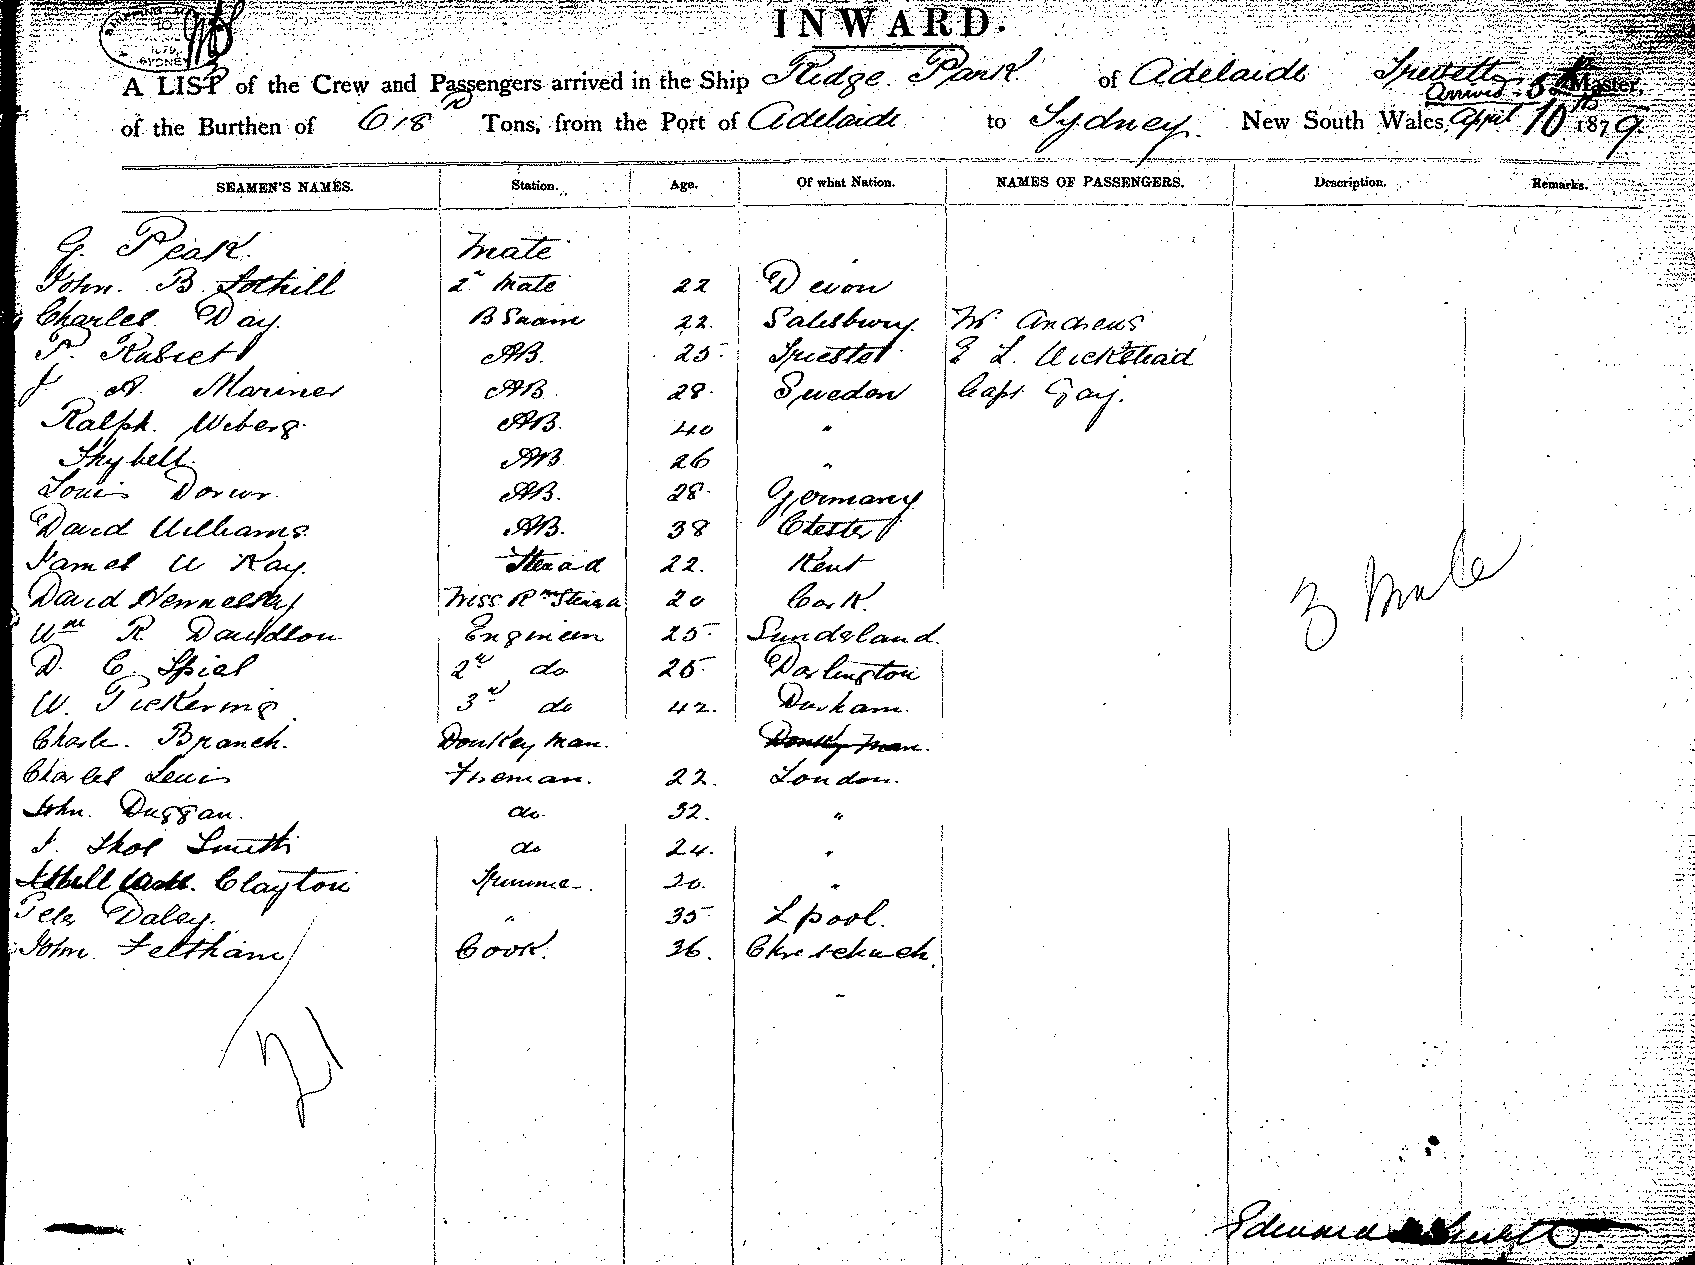 INWARD.
A LIST of the Crew and Passengers arrived in the Ship Ridge Park of Adelaide Trevetto Master,
Arrived
of the Burthen of 618 Tons, from the Port of Adelaide to Sydney. New South Wales, April 10th 1879.
SEAMEN'S NAMES. Station. Age. Of what Nation. NAMES OF PASSENGERS. Description. Remarks.
G. Peak. Mate
John. B. Tothill 2d Mate 22 Devon
Charles Day. BSwain 22. Salesbury. W. Andrews
P. 25. Trieste E L. Wickstead
J A. Mariner AB 28. Sweden Capt Gay.
Ralph. Weberg. AB. 40 "
Thybell. AB 26 "
Louis AB. 28. Germany
David Williams. AB. 38 Chester
James W Kay. Steward 22. Kent
David Hennessay Mess Rm Steward 20 Cork.
Wm R. Davidson Engineer 25. Sunderland.
D. C. Spial 2nd do 25. Darlington
W. Pickering. 3rd do 42. Durham.
Charles. Branch. Donkeyman. Donkey Man.
Charles Lewis Fireman. 22. London.
John. Duggan. do 32. "
J. Thos Smith do 24. "
Clayton Trimmer. 20. "
Peter Daley. " 35 Lpool.
John Feltham Cook. 36. Chrischurch.
3 Male
21
Edward